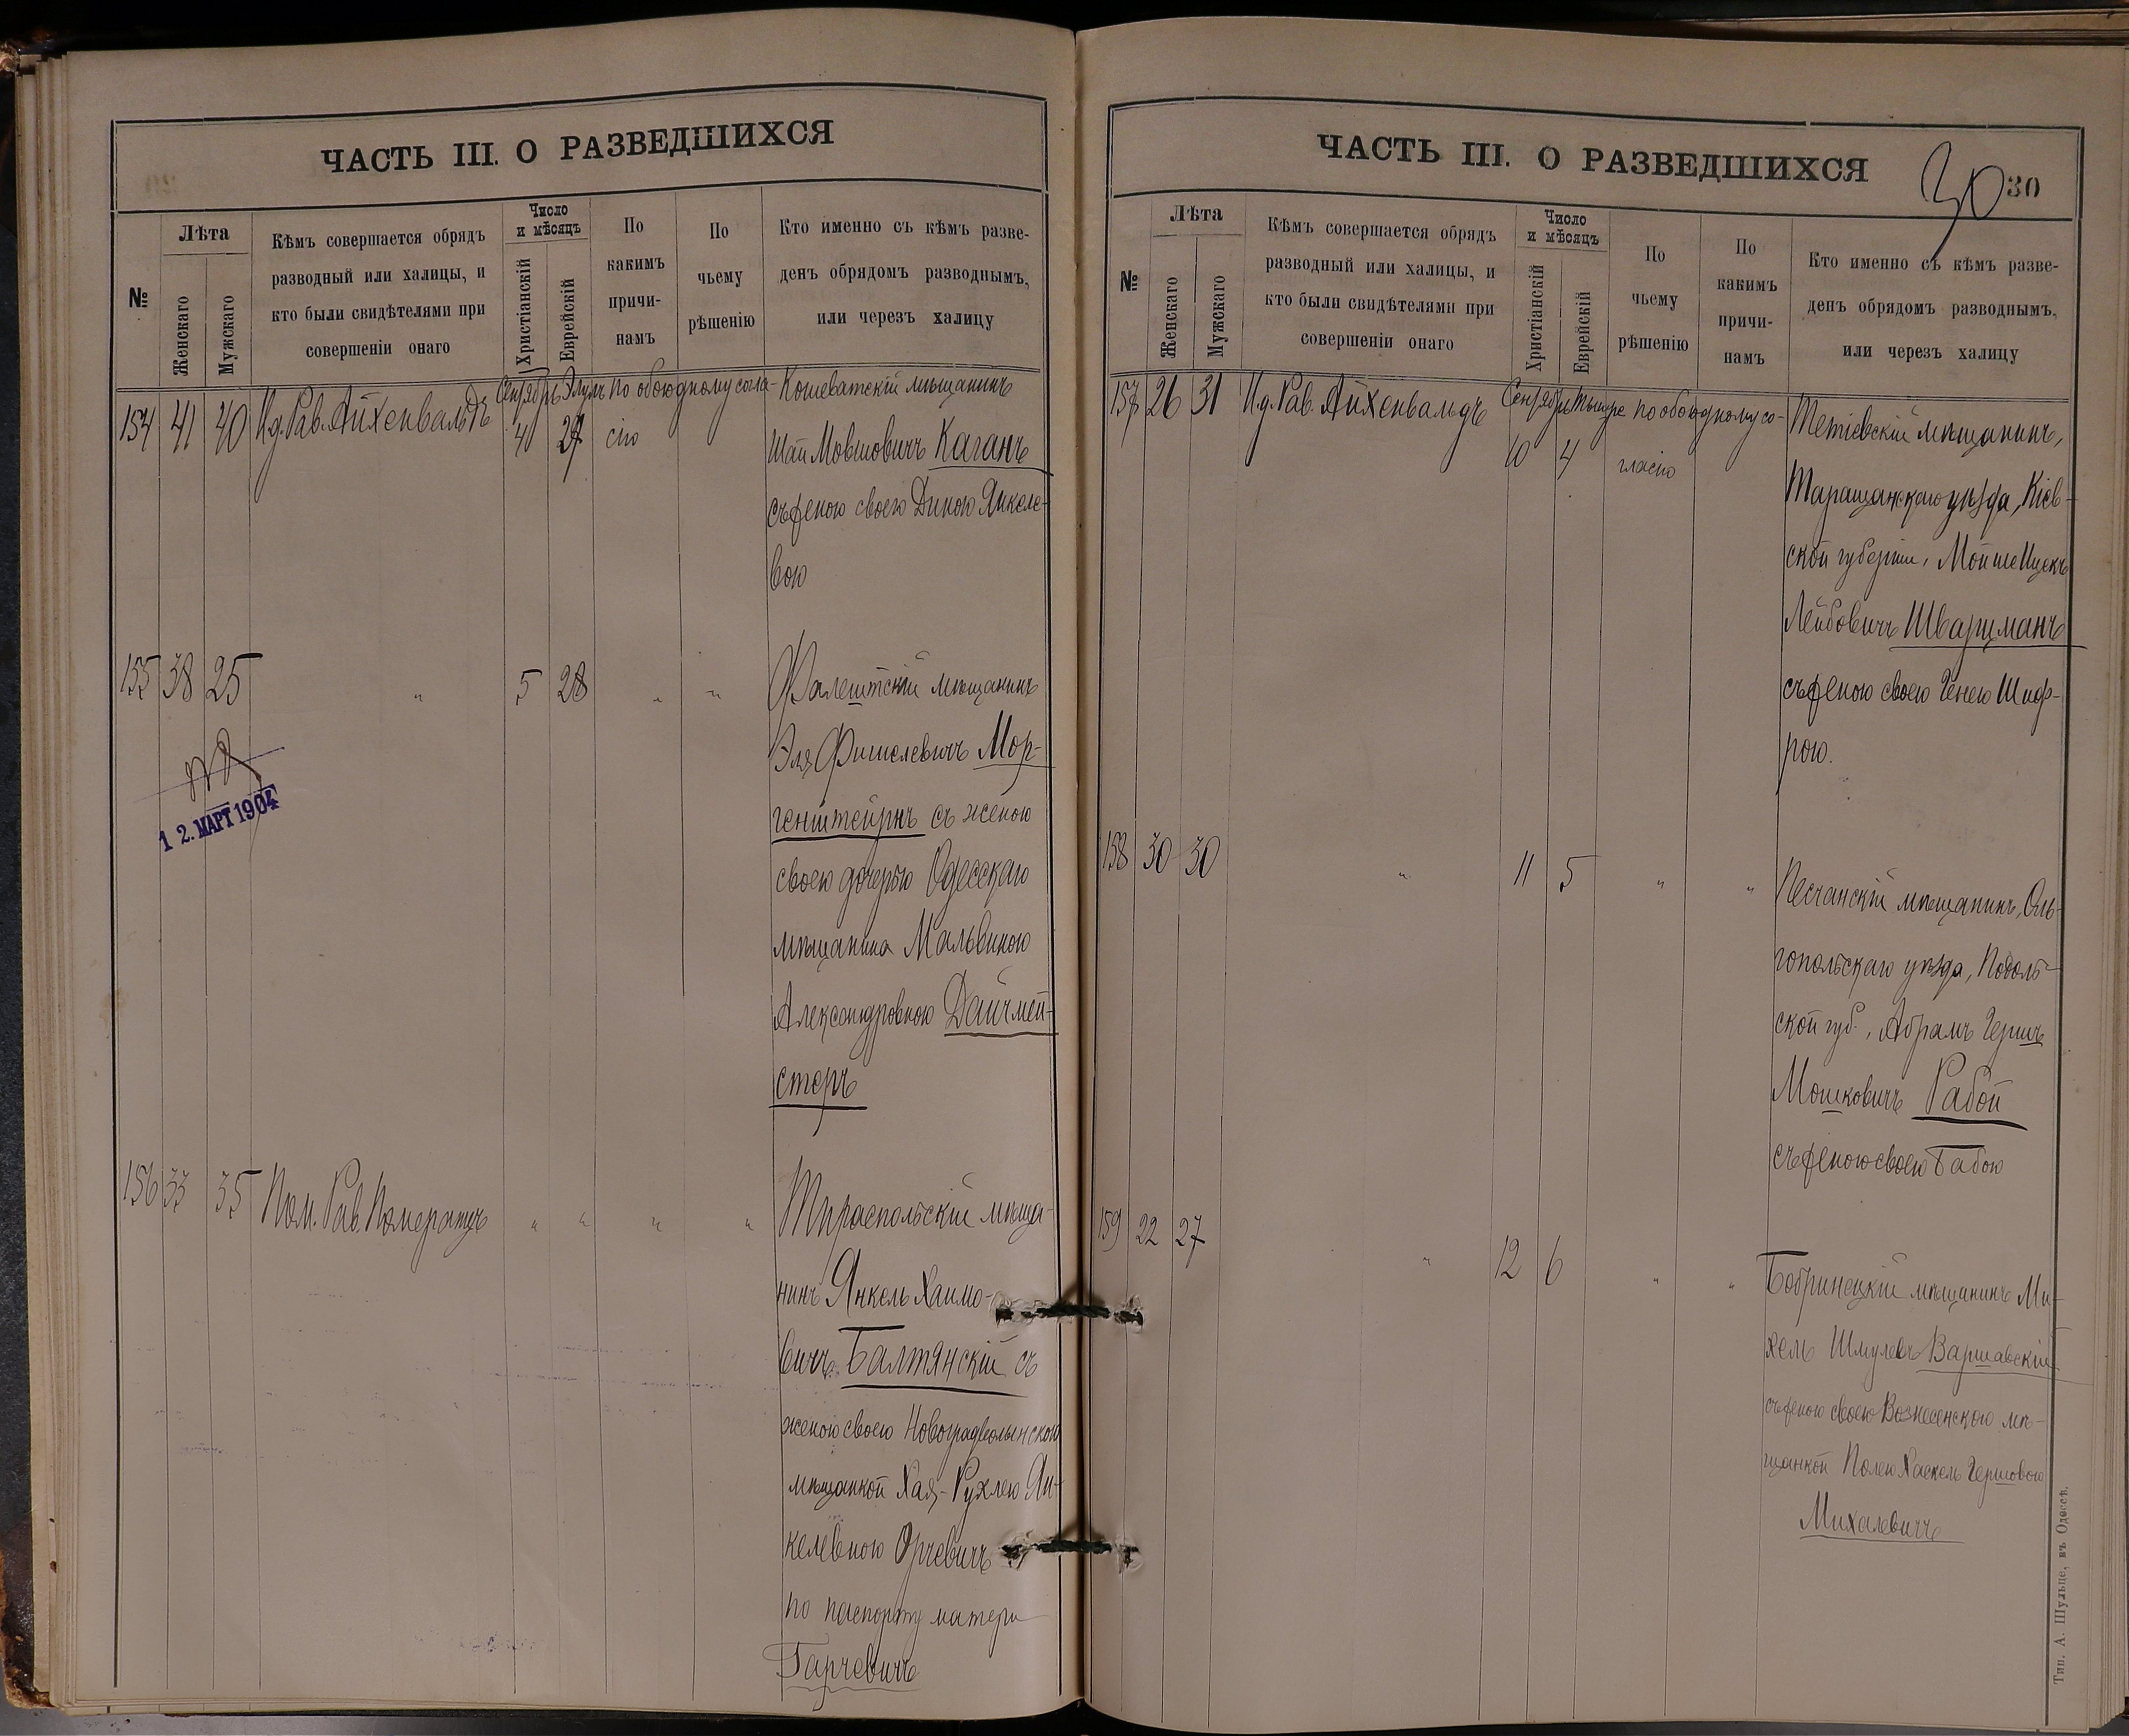 ЧАСТЬ III. О РАЗВЕДШИХСЯ
№
Лѣта
Женскаго
Мужскаго
Кѣмъ совершается обрядъ
разводный или халицы, и
кто были свидѣтелями при
совершеніи онаго
Число
и мѣсяцъ
Христіанскій
Еврейскій
По
какимъ
причи-
намъ
По
чьему
рѣшенію
Кто именно съ кѣмъ разве-
денъ обрядомъ разводнымъ,
или черезъ халицу
154 41 40 И.д. Рав. Айхенвальдъ
Сентябрь Элулъ По обоюдному согла-
4 27 сію
Кошеватскій мѣщанинъ
Шая Мовшовичъ Каганъ
съ женою своею Диною Янкеле-
вою
155 38 25 " 5 28 " "
12. МАРТ 1904
Фалештскій мѣщанинъ
Эля Фишелевичъ Мор-
генштейрнъ съ женою
своею дочерью Одесскаго
мѣщанина Мальвиною
Александровною Дайчмей-
стеръ
156 33 35 Пом. Рав. Померанцъ " " " "
Тираспольскій мѣща-
нинъ Янкель Хаимо-
вичъ Балтянскій съ
женою своею Новоградволынскою
мѣщанкой Хая-Рухлею Ян-
келевною Орчевичъ
по паспорту матери
Гарчевичъ
ЧАСТЬ III. О РАЗВЕДШИХСЯ
30
30
№
Лѣта
Женскаго
Мужскаго
Кѣмъ совершается обрядъ
разводный или халицы, и
кто были свидѣтелями при
совершеніи онаго
Число
и мѣсяцъ
Христіанскій
Еврейскій
По
чьему
рѣшенію
По
какимъ
причи-
намъ
Кто именно съ кѣмъ разве-
денъ обрядомъ разводнымъ,
или черезъ халицу
157 26 31 И.д. Рав. Айхенвальдъ
Сентябрь Тышре По обоюдному со-
10 4 гласію
Тетіевскій мѣщанинъ,
Таращанскаго уѣзда, Кіев-
ской губерніи, Мойше Ицекъ
Лейбовичъ Шварцманъ
съ женою своею Генею Шиф-
рою.
158 30 30 " 11 5 " "
Песчанскій мѣщанинъ, Оль-
гопольскаго уѣзда, Подоль-
ской губ., Абрамъ Гершъ
Мошковичъ Рабой
съ женою своею Бабою
159 22 27 " 12 6 " "
Бобринецкій мѣщанинъ Ми-
хель Шмулевъ Варшавскій
съ женою своею Вознесенскою мѣ-
щанкой Полею Хаскель Гершовою
Михалевичъ
Тип. А. Шульце, въ Одессѣ.